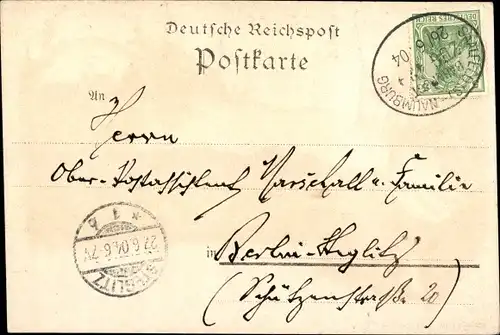 Deutsche Reichspost
Postkarte
DEUTSCHES REICH
NAUMBURG
26 6 04
An
Herrn
Ober-Postassistent Marschall u. Familie
* 1 b
27.6.04.6-7V
STEGLITZ
in Berlin-Steglitz
(Schützenstraße 20)